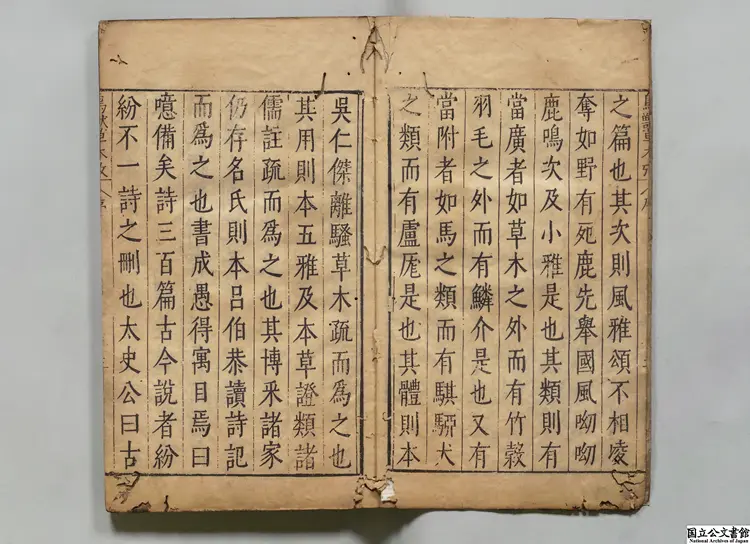 之篇也其次則風雅頌不相凌
奪如野有死鹿先舉國風呦呦
鹿鳴次及小雅是也其類則有
當廣者如草木之外而有竹榖
羽毛之外而有鱗介是也又有
當附者如馬之類而有騏犬
之類而有盧厖是也其體則本
吳仁傑離騷草木疏而爲之也
其用則本五雅及本草證類諸
儒註疏而爲之也其博采諸家
仍存名氏則本呂伯恭讀詩記
而爲之也書成愚得寓目焉曰
噫備矣詩三百篇古今說者紛
紛不一詩之刪也太史公曰古
国立公文書館
National Archives of Japan